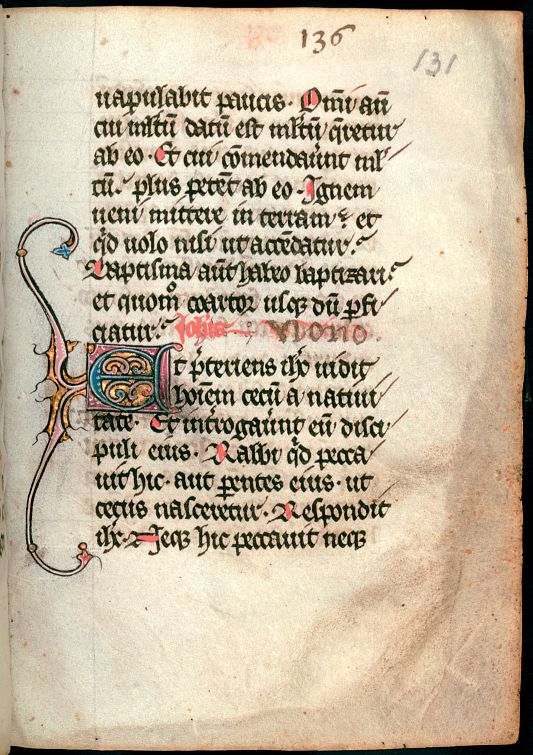 136
131
uapulabit paucis. Om̄i aūt
cui ml̄tū datū est ml̄tū q̄retur
ab eo. Et cui cōmendauer̄unt ml̄
tū. plus petēt ab eo. Ignem
ueni mittere in terram: et
q̄d uolo nisi ut accēdatur.
Baptisma aūt habeo baptizari:
et quom̊ coartor usqꝫ dū ꝑfi
ciatur. Joh̄is
Et p̄teriens ih̄c uidit
hoīem cecū a natiui
tate. Et int̄rogauer̄unt eū disci
puli eius. Rabbi q̄d pecca
uit hic. aut ꝑentes eius. ut
cecus nasceretur. Respondit
ih̄c. Neqꝫ hic peccauit neqꝫ